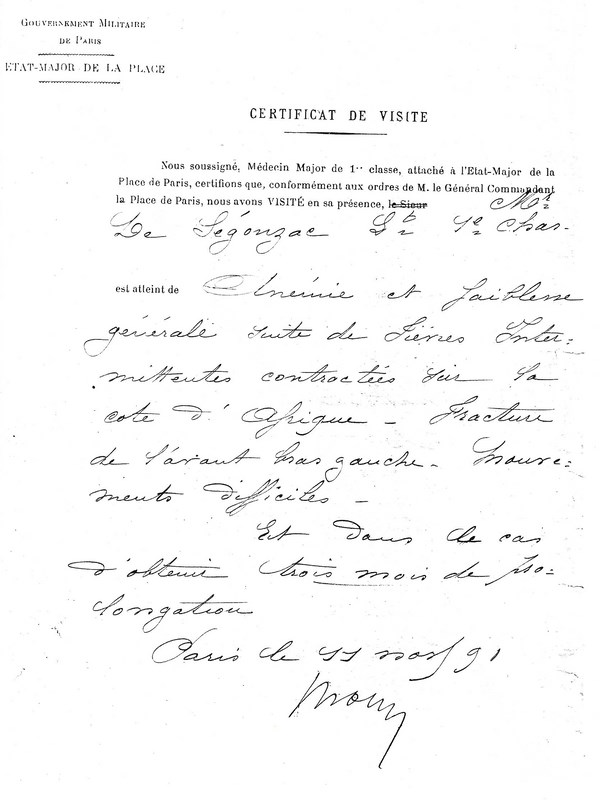 GOUVERNEMENT MILITAIRE
DE PARIS
ETAT-MAJOR DE LA PLACE
CERTIFICAT DE VISITE
Nous soussigné, Médecin Major de 1re classe, attaché à l'Etat-Major de la
Place de Paris, certifions que, conformément aux ordres de M. le Général Commandant
la Place de Paris, nous avons VISITÉ en sa présence, le Sieur Mr
De Ségonzac Lt 1e Chas-
est atteint de Anémie et faiblesse
générale suite de Fièvres Inter-
mittentes contractées sur la
cote d'Afrique - Fracture
de l'avant bras gauche - Mouve-
ments difficiles -
Est dans le cas
d'obtenir trois mois de pro-
longation
Paris le 11 91